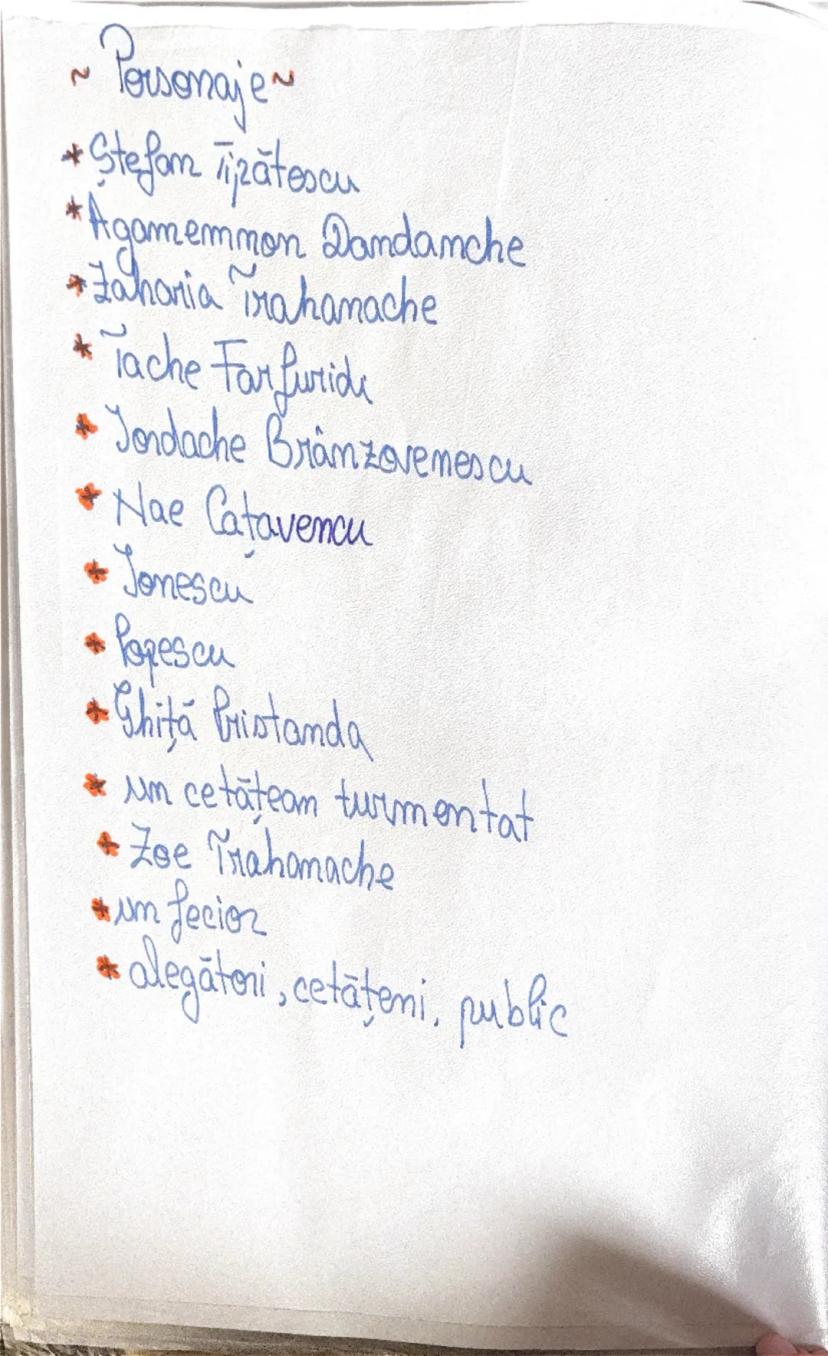 ~ Personaje ~
* Ștefan Tipătescu
* Agamemnon Dandanche
* Zaharia Trahanache
* Tache Farfuridi
* Iordache Brânzovenescu
* Nae Cațavencu
* Ionescu
* Popescu
* Ghiță Pristanda
* un cetățean turmentat
* Zoe Trahanache
* un fecior
* alegători, cetățeni, public